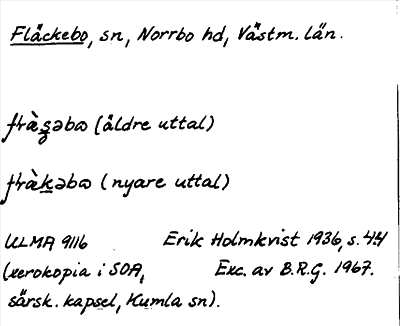 Fläckebo, sn, Norrbo hd, Västm. län.
(äldre uttal)
(nyare uttal)
ULMA 9116 Erik Holmkvist 1936, s. 44
(xerokopia i SOA, Exc. av B.R.G. 1967.
särsk. kapsel, Kumla sn).